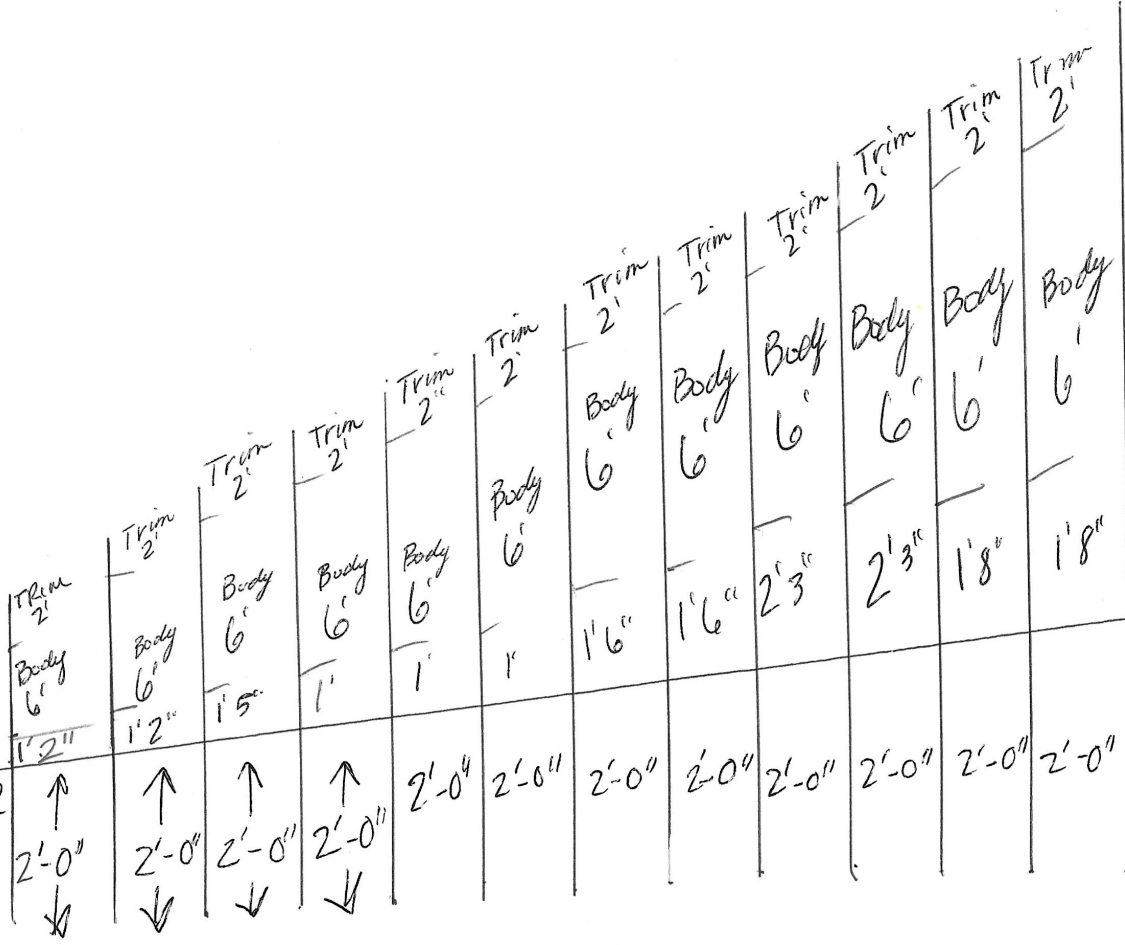 TRim
2'
Body
6'
1'2"
2'-0"
Trim
2'
Body
6'
1'2"
2'-0"
Trim
2'
Body
6'
1'5"
2'-0"
Trim
2'
Body
6'
1'
2'-0"
Trim
2"
Body
6'
1'
2'-0"
Trim
2'
Body
6'
1'
2'-0"
Trim
2'
Body
6'
1'6"
2'-0"
Trim
2'
Body
6'
1'6"
2'-0"
Trim
2'
Body
6'
2'3"
2'-0"
Trim
2'
Body
6'
2'3"
2'-0"
Trim
2'
Body
6'
1'8"
2'-0"
Trim
2'
Body
6'
1'8"
2'-0"